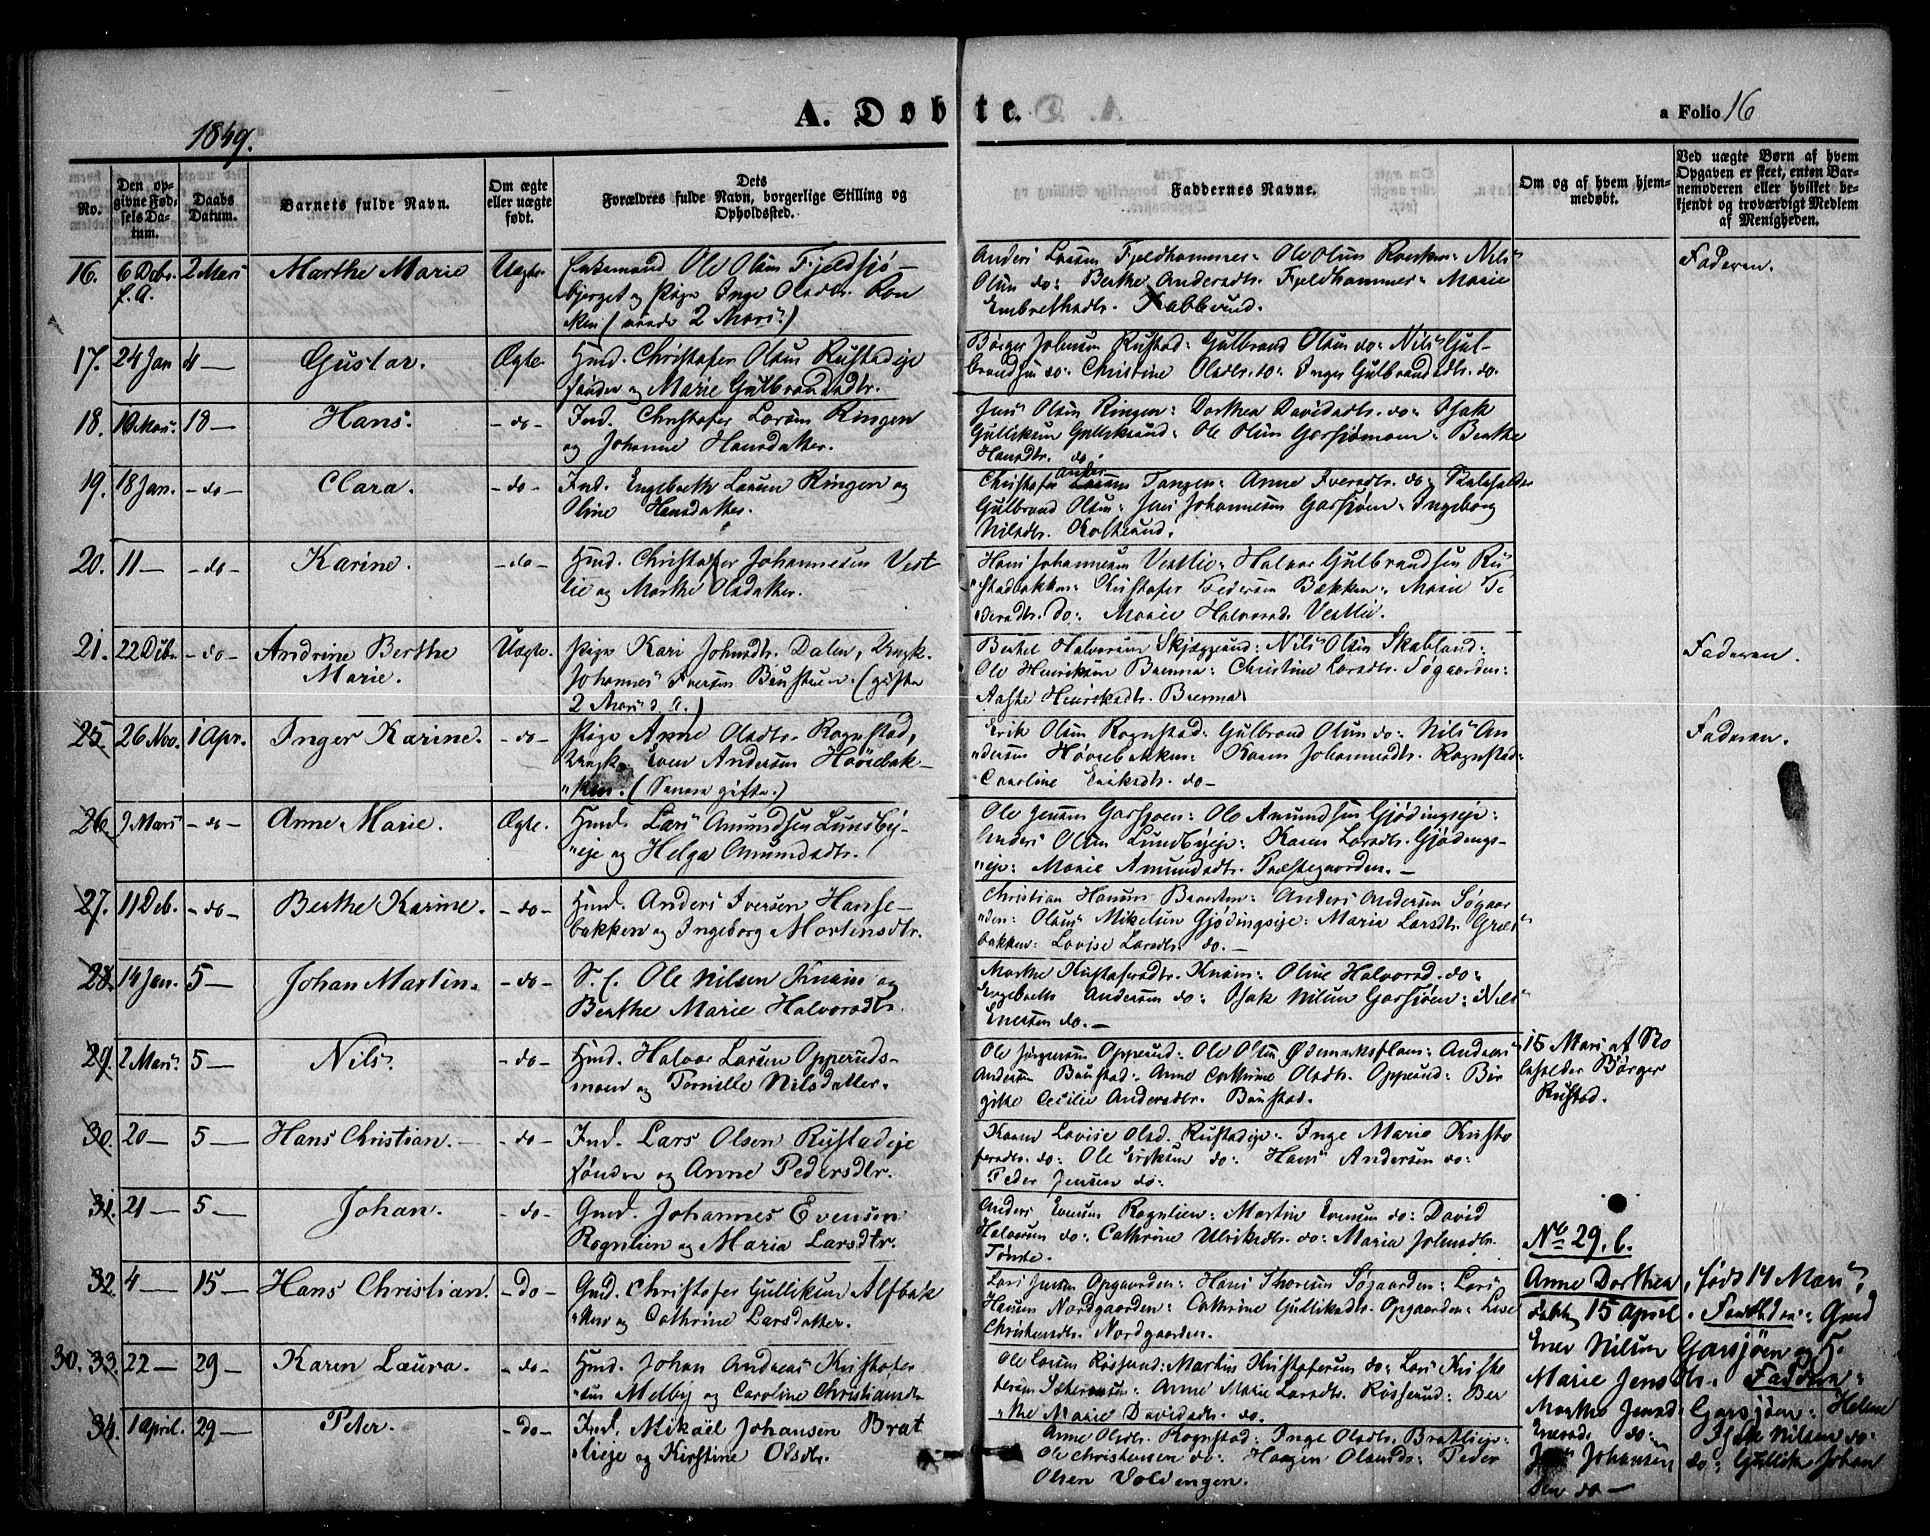 1849.
A. Døbte.
a Folio 16
No.
Den op-
givne Fød-
sels Da-
tum.
Daabs
Datum.
Barnets fulde Navn.
Om ægte
eller uægte
født.
Dets
Forældres fulde Navn, borgerlige Stilling og
Opholdssted.
Faddernes Navne.
Om og af hvem hjem-
medøbt.
Ved uægte Børn af hvem
Opgaven er skeet, enten Bar-
nemoderen eller hvilket be-
kjendt og troværdigt Medlem
af Menigheden.
16. 6 Debr. f. A. 2 Mars Marthe Marie Uægte. Enkemand Ole Olsen Fjeldsjø-
bjerget og Pige Inge Olsdtr. Ron
ken (viede 2 Mars.)
Anders Larsen Fjeldhammer: Ole Olsen Ronken: Nils
Olsen do: Berthe Andersdtr. Fjeldhammer: Marie
Embrethsdtr. Kabberud.
Faderen.
17. 24 Jan 4 — Gustav. Ægte. Hmd. Christofer Olsen Rustadeje
søndre og Marie Gulbrandsdtr.
Børger Johnsen Rustad: Gulbrand Olsen do: Nils Gul-
brandsen do: Christine Olsdtr. do: Inger Gulbrandsdtr. do.
18. Mars. 18 — Hans. - do - Ind. Christofer Larsen Ringen
og Johanne Hansdatter.
Jens Olsen Ringen: Dorthea Davidsdtr. do: Isak
Gulliksen Gulliksrud: Ole Olsen Garsjømoen: Berthe
Hansdtr. do.
19. 18 Jan. - do - Clara. - do - Ind. Engebreth Larsen Ringen og
Oline Hansdatter.
Christofer Tangen: Anne Iversdtr. do:
Gulbrand Olsen: Jens Johannesen Garsjøen: Ingeborg
Nilsdtr.
20. 11 — - do - Karine. - do - Hmd. Christofer Johannesen Vest
lie og Marthe Olsdatter.
Hans Johannesen Vestlie: Halvor Gulbrandsen Ru
stadbakken: Kristofer Pedersen Bakken: Marie P.
dersdtr. do: Marie Halvorsd. Vestlie.
21. 22 Debr. - do - Andrine Berthe
Marie. Uægte. Pige Kari Johnsdtr. Dalen, Ungk.
Johannes Iversen Baustuen. (gifte
2 Mars d. A.)
Berthel Halvorsen Skjæggerud: Nils Olsen Skabland:
Ole Henriksen Brenna: Christine Larsdtr. Søgaarden:
Aaste Henriksdtr. Brenna
Faderen.
25. 26 Nov. 1 Apr. Inger Karine. - do - Pige Anne Olsdtr. Rognstad,
Ungk. Even Andersen Høvrebak-
ken. (Senere gifte.)
Erik Olsen Rognstad: Gulbrand Olsen do: Nils An
dersen Høvrebakken: Karen Johannesdtr. Rognstad:
Caroline Eriksdtr. do -
Faderen.
26. 9 Mars - do - Anne Marie. Ægte. Hmd. Lars Amundsen Lundby-
eje og Helga Amundsdtr.
Ole Jensen Garsjøen: Ole Amundsen Gjødingseje:
Anders Olsen Lundbyeje: Karen Larsdtr. Gjødings-
eje: Marie Amundsdtr. Præstegaarden. -
27. 11 Deb. - do - Berthe Karine. - do - Hmd. Anders Iversen Hanse-
bakken og Ingeborg Mortensdtr.
Christian Hansen Braaten: Anders Andersen Søgaar
den: Olaus Mikelsen Gjødingseje: Maria Larsdtr.
bakken: Lovise Larsdtr. do. -
28. 14 Jan. 5 — Johan Martin. - do - S. f. Ole Nilsen Knain og
Berthe Marie Halvorsdtr.
Marthe Kristofersdtr. Knain: Oline Halvorsd. do:
Engebreth Andersen do: Isak Nilsen Garsjøen: Nils
Enersen do. -
29. 2 Mars 5 — Nils. - do - Hmd. Halvor Larsen Opperuds-
moen og Pernille Nilsdatter.
Ole Jørgensen Opperud: Ole Olsen Ødemarksflaen: Andreas
Andersen Baustad: Anne Cathrine Olsdtr. Opperud: Bir
gitte Cecilie Andersdtr. Baustad.
15 Mars af Sko
leholder Børger
Rustad.
30. 20 — 5 — Hans Christian. - do - Ind. Lars Olsen Rustadeje
søndre og Anne Pedersdtr.
Karen Lovise Olsd. Rustadeje: Inge Marie Kristo
fersdtr. do: Ole Eriksen do: Hans Andersen do:
Peder Jensen do:
31. 21 — 5 — Johan. - do - Gmd. Johannes Evensen
Rognlien og Maria Larsdtr.
Anders Evensen Rognlien: Martin Evensen do: David
Halvorsen do: Cathrine Ulriksdtr. do: Maria Johnsdtr.
Tønte.
32. 4 — 15 — Hans Christian. - Do - Gmd. Christofer Gulliksen Alfbak
ken og Cathrine Larsdatter.
Lars Jensen Opgaarden: Hans Thoresen Søgaarden: Lars
Hansen Nordgaarden: Cathrine Gulliksdtr. Opgaarden: Lise
Christensdtr. Nordgaarden.
30. 33. 22 — 29 — Karen Laura. - do - Hmd. Johan Andreas Kristofer
sen Melby og Caroline Christiansdtr.
Ole Larsen Røsserud: Martin Kristofersen do: Lars Kriste
Anne Marie Larsdtr. Røsserud: Ber
the Marie Davidsdtr. do.
34. 1 April. 29 — Peter. - Do - Ind. Mikael Johansen Brat
lieje og Kirstine Olsdtr.
Anne Olsdtr. Rognstad: Inge Olsdtr. Bratlieje:
Ole Christensen do: Haagen Olsen do: Peder
Olsen Voldengen.
No 29. b.
Anne Dorthea, født 14 Mars,
døbt 15 April. Forældre: Gmd
Ener Nilsen Garsjøen og
Marie Jensdtr. Faddere:
Marthe Jensd. Garsjøen: Helene
Enersd. do: Isak Nilsen do:
Jens Johansen do: Gullik Johan
sen do -